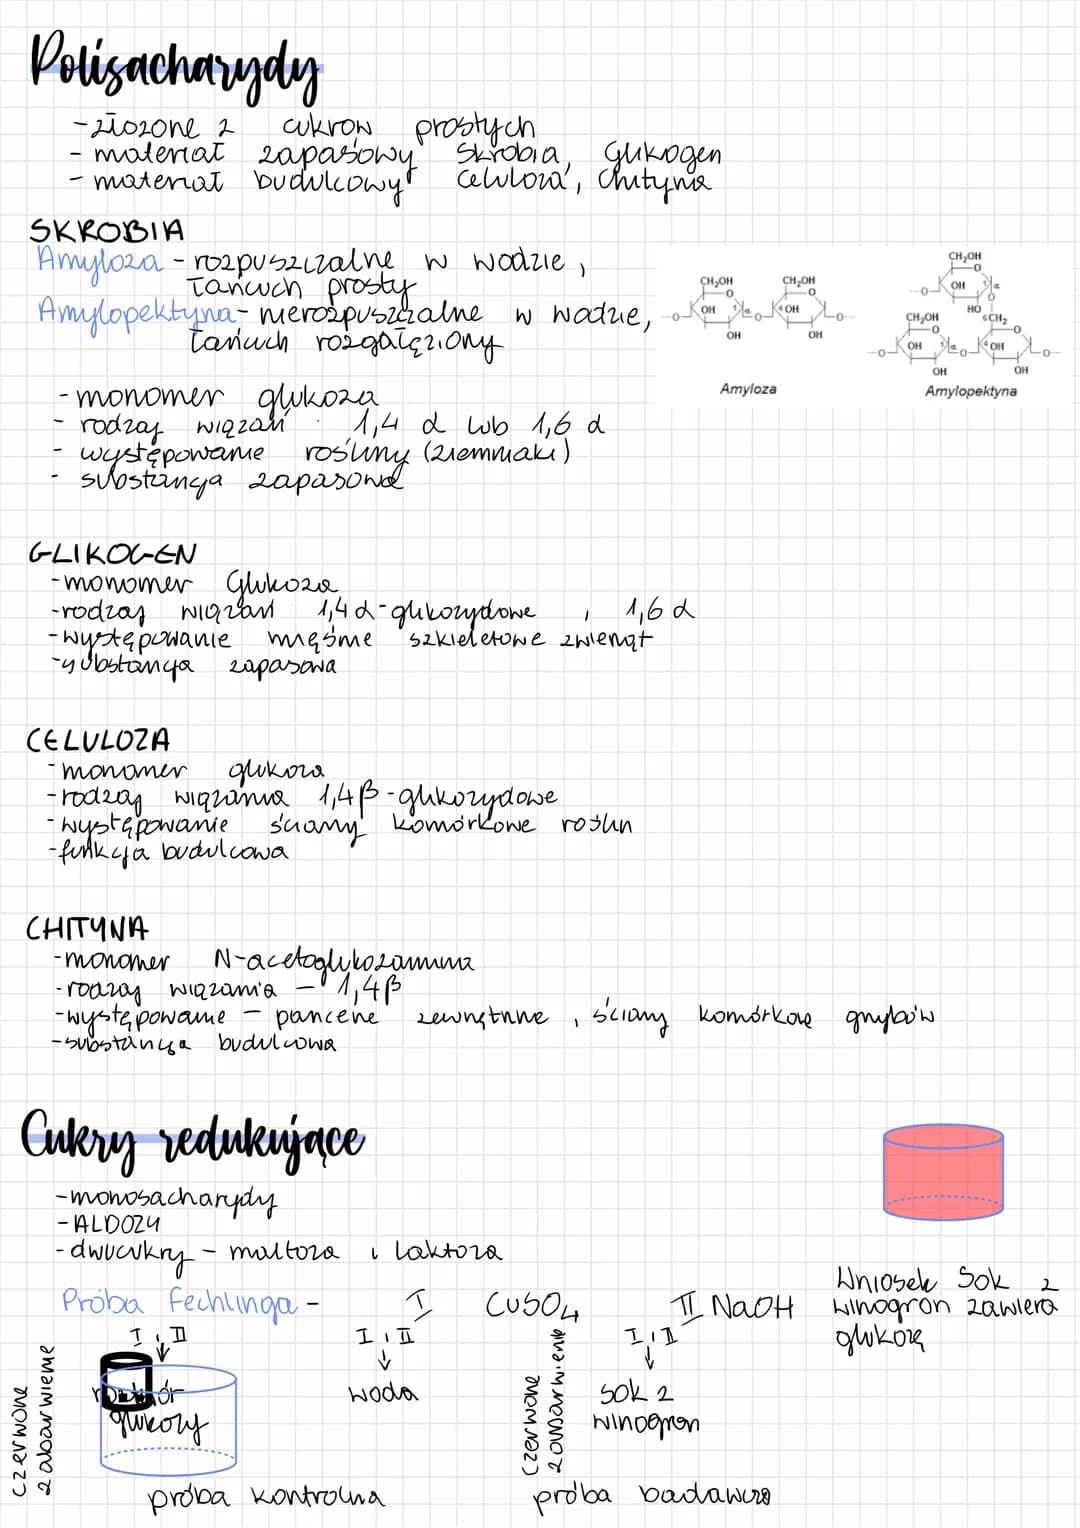 Polisacharydy
- złożone z cukrów prostych
- materiał zapasowy skrobia, glikogen
- materiał budulcowy celuloza, chityna
SKROBIA
Amyloza - rozpuszczalne w wodzie,
łańcuch prosty
Amylopektyna - nierozpuszczalne w wodzie,
łańcuch rozgałęziony
CH₂OH
O
OH
1
α
O
CH₂OH
O
4
OH
O
OH
OH
Amyloza
CH₂OH
O
OH
1
α
O
HO
O
CH₂OH
O
OH
1
α
O
6CH₂
O
4
OH
O
OH
OH
Amylopektyna
- monomer glukoza
- rodzaj wiązań 1,4 α lub 1,6 α
- występowanie rośliny (ziemniaki)
- substancja zapasowa
GLIKOGEN
- monomer Glukoza
- rodzaj wiązań 1,4 α - glikozydowe , 1,6 α
- występowanie mięśnie szkieletowe zwierząt
- substancja zapasowa
CELULOZA
- monomer glukoza
- rodzaj wiązania 1,4 β - glikozydowe
- występowanie ściany komórkowe roślin
- funkcja budulcowa
CHITYNA
- monomer N-acetoglukozamina
- rodzaj wiązania - 1,4 β
- występowanie - pancerze zewnętrzne , ściany komórkowe grzybów
- substancja budulcowa
Cukry redukujące
- monosacharydy
- ALDOZY
- dwucukry - maltoza i laktoza
Próba Fechlinga - I CuSO₄ II NaOH
Wniosek Sok z
winogron zawiera
glukozę
I i II
roztwór
glukozy
czerwone
zabarwienie
I i II
woda
próba kontrolna
czerwone
zabarwienie
I i II
sok z
winogron
próba badawcza